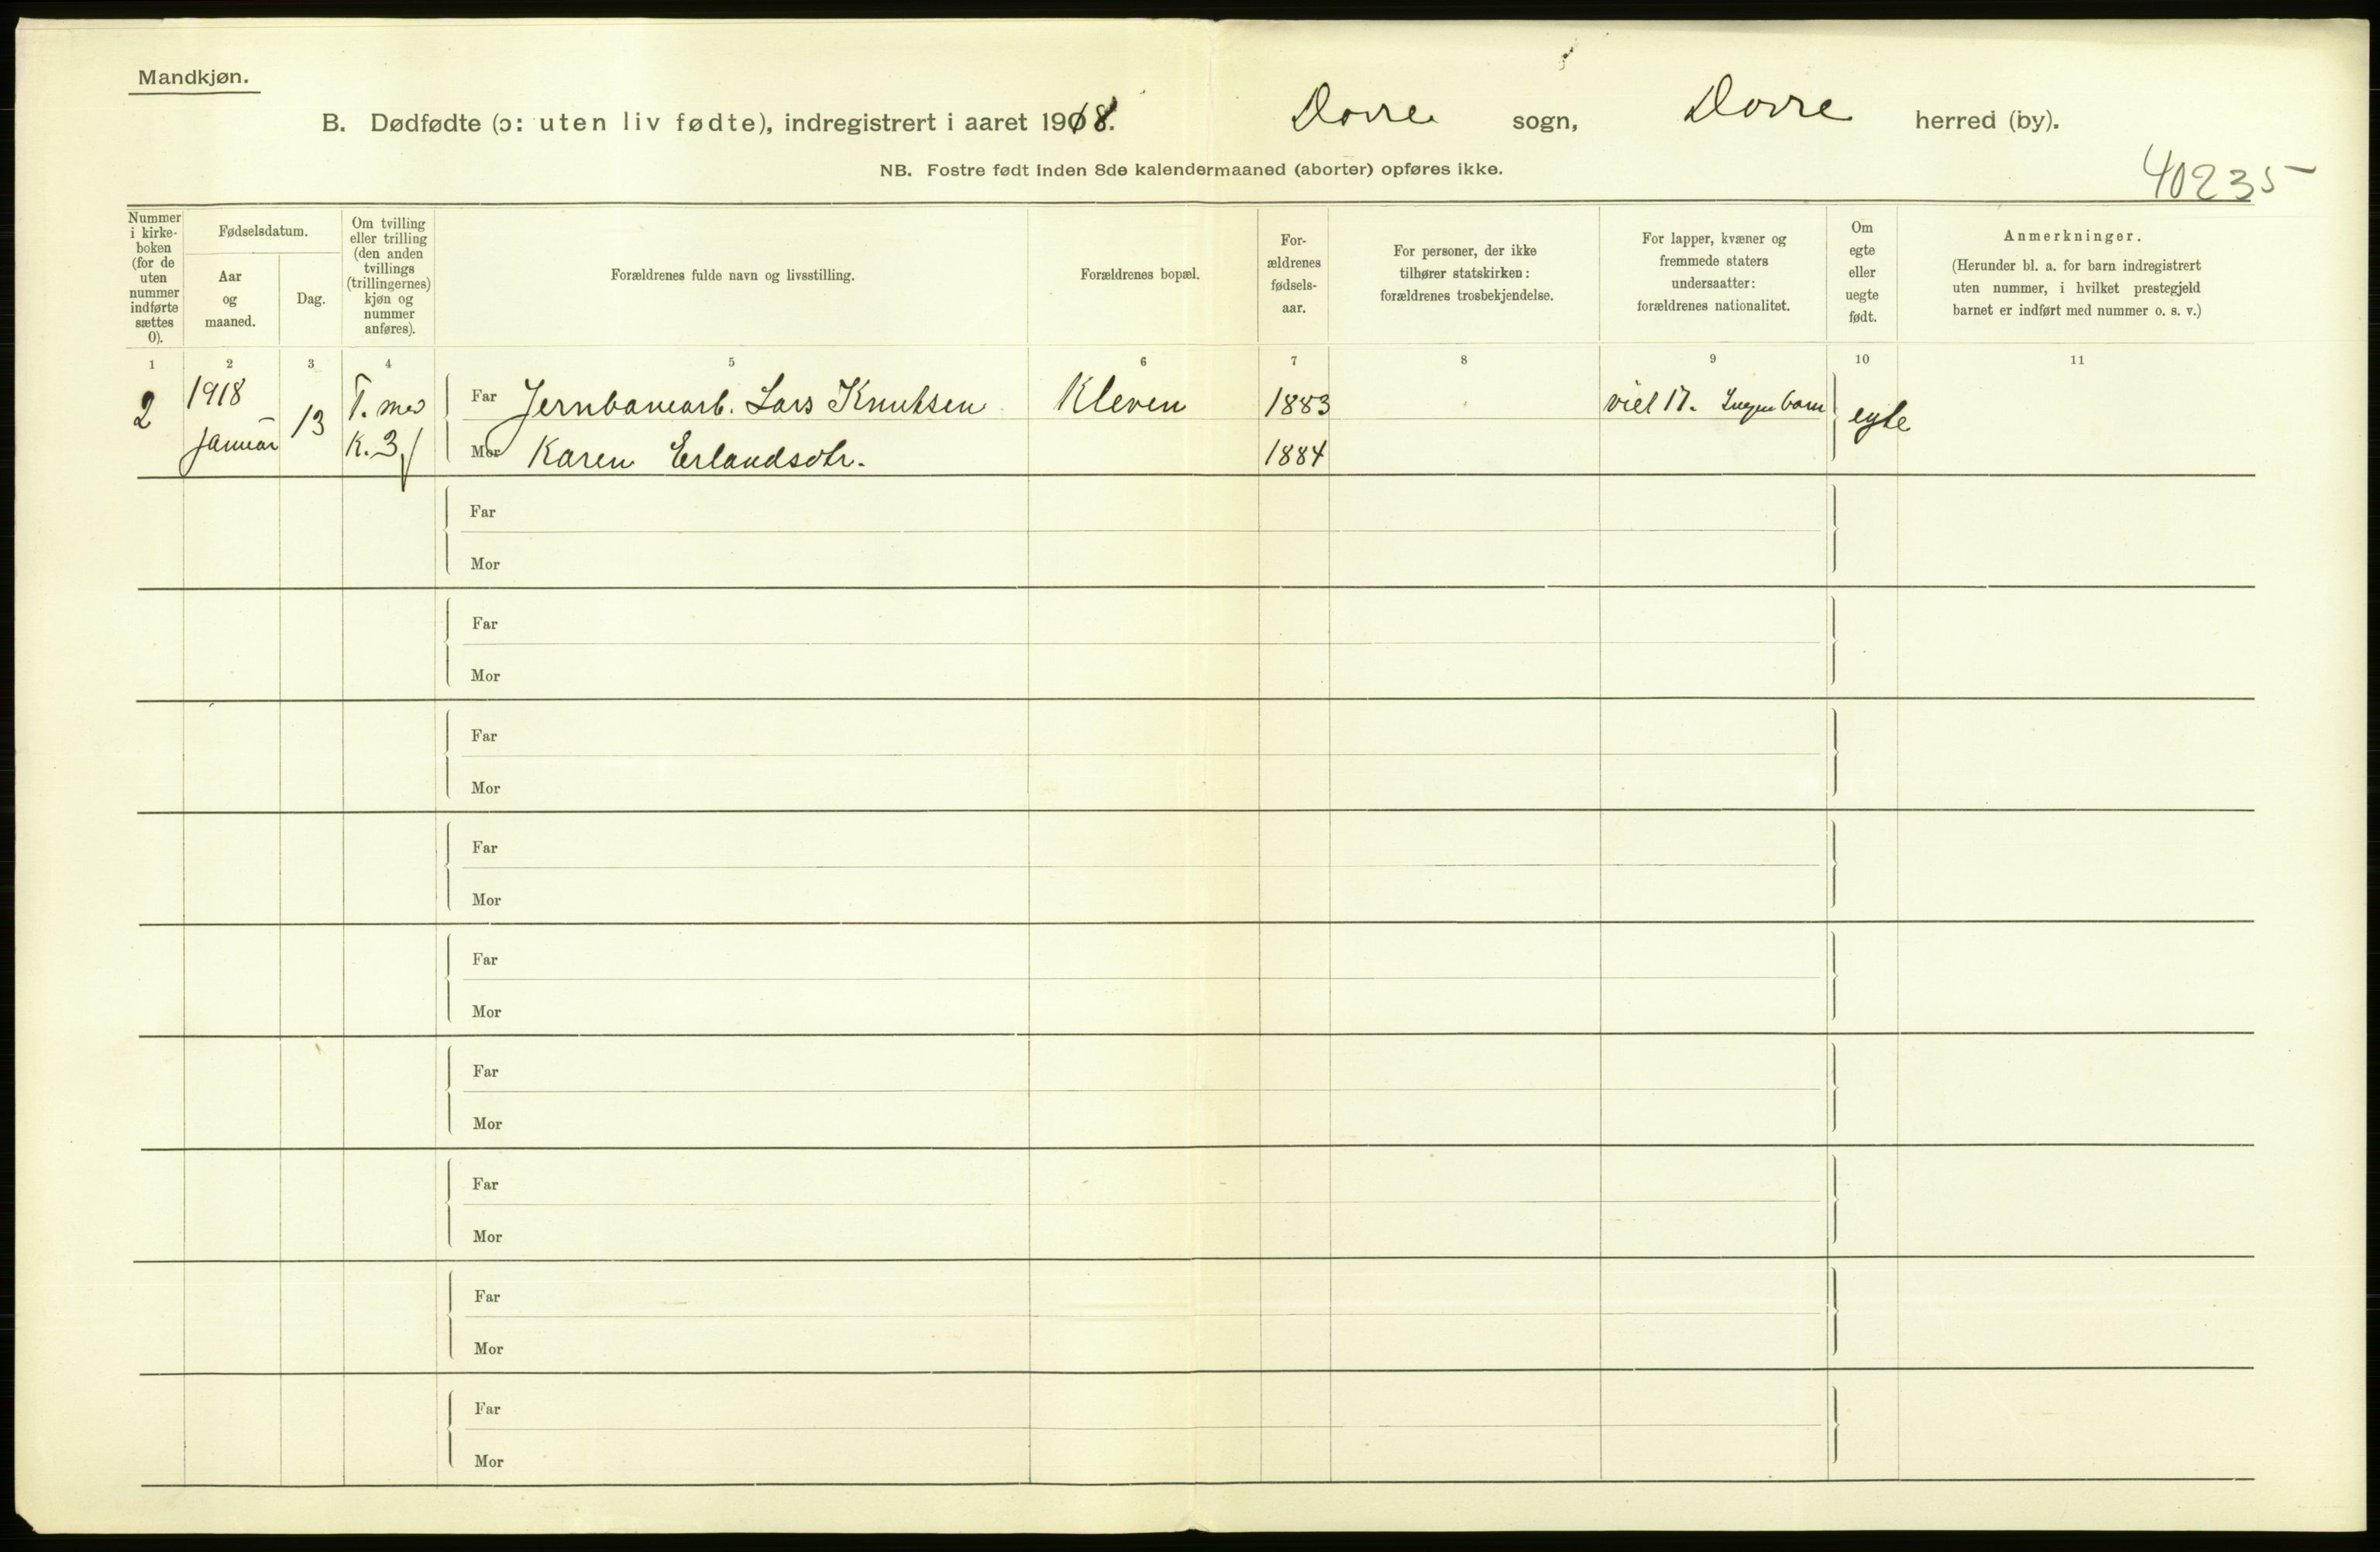 Mandkjøn.
B. Dødfødte (ɔ: uten liv fødte), indregistrert i aaret 1918. Dovre sogn, Dovre herred (by).
NB. Fostre født inden 8de kalendermaaned (aborter) opføres ikke.
40235
Nummer i kirke-boken (for de uten nummer indførte sættes 0).
Fødselsdatum.
Aar og maaned.
Dag.
Om tvilling eller trilling (den anden tvillings (trillingernes) kjøn og nummer anføres).
Forældrenes fulde navn og livsstilling.
Forældrenes bopæl.
For-ældrenes fødsels-aar.
For personer, der ikke tilhører statskirken: forældrenes trosbekjendelse.
For lapper, kvæner og fremmede staters undersaatter: forældrenes nationalitet.
Om egte eller uegte født.
Anmerkninger.
(Herunder bl. a. for barn indregistrert uten nummer, i hvilket prestegjeld barnet er indført med nummer o. s. v.)
1 2 3 4 5 6 7 8 9 10 11
2 1918 januar 13 T. med K. 3
Far Jernbanearb. Lars Knutsen Kleven 1883 viet 17. Ingen barn egte
Mor Karen Erlandsdtr. 1884
Far
Mor
Far
Mor
Far
Mor
Far
Mor
Far
Mor
Far
Mor
Far
Mor
Far
Mor
Far
Mor